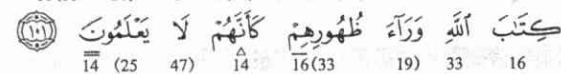 كِتَٰبَ ٱللَّهِ وَرَآءَ ظُهُورِهِمْ كَأَنَّهُمْ لَا يَعْلَمُونَ ﴿١٠١﴾
16 33 19) 16(33 14 47) 14 (25